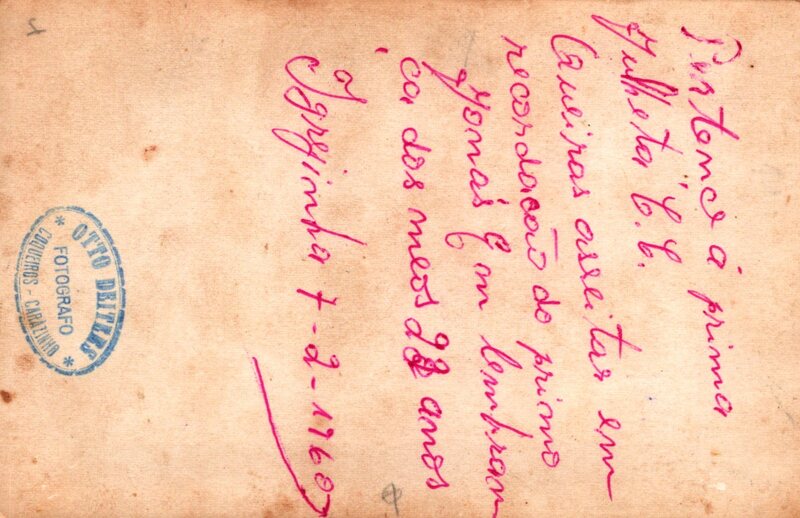 Pertence á prima
Julheta C.C.
Queiras asseitar em
recordacão do primo
Jonas q em lembran
ca dos meos 22 anos
Igrejinha 7-2-1960
OTTO DEITERS
FOTOGRAFO
COQUEIROS - CARAZINHO